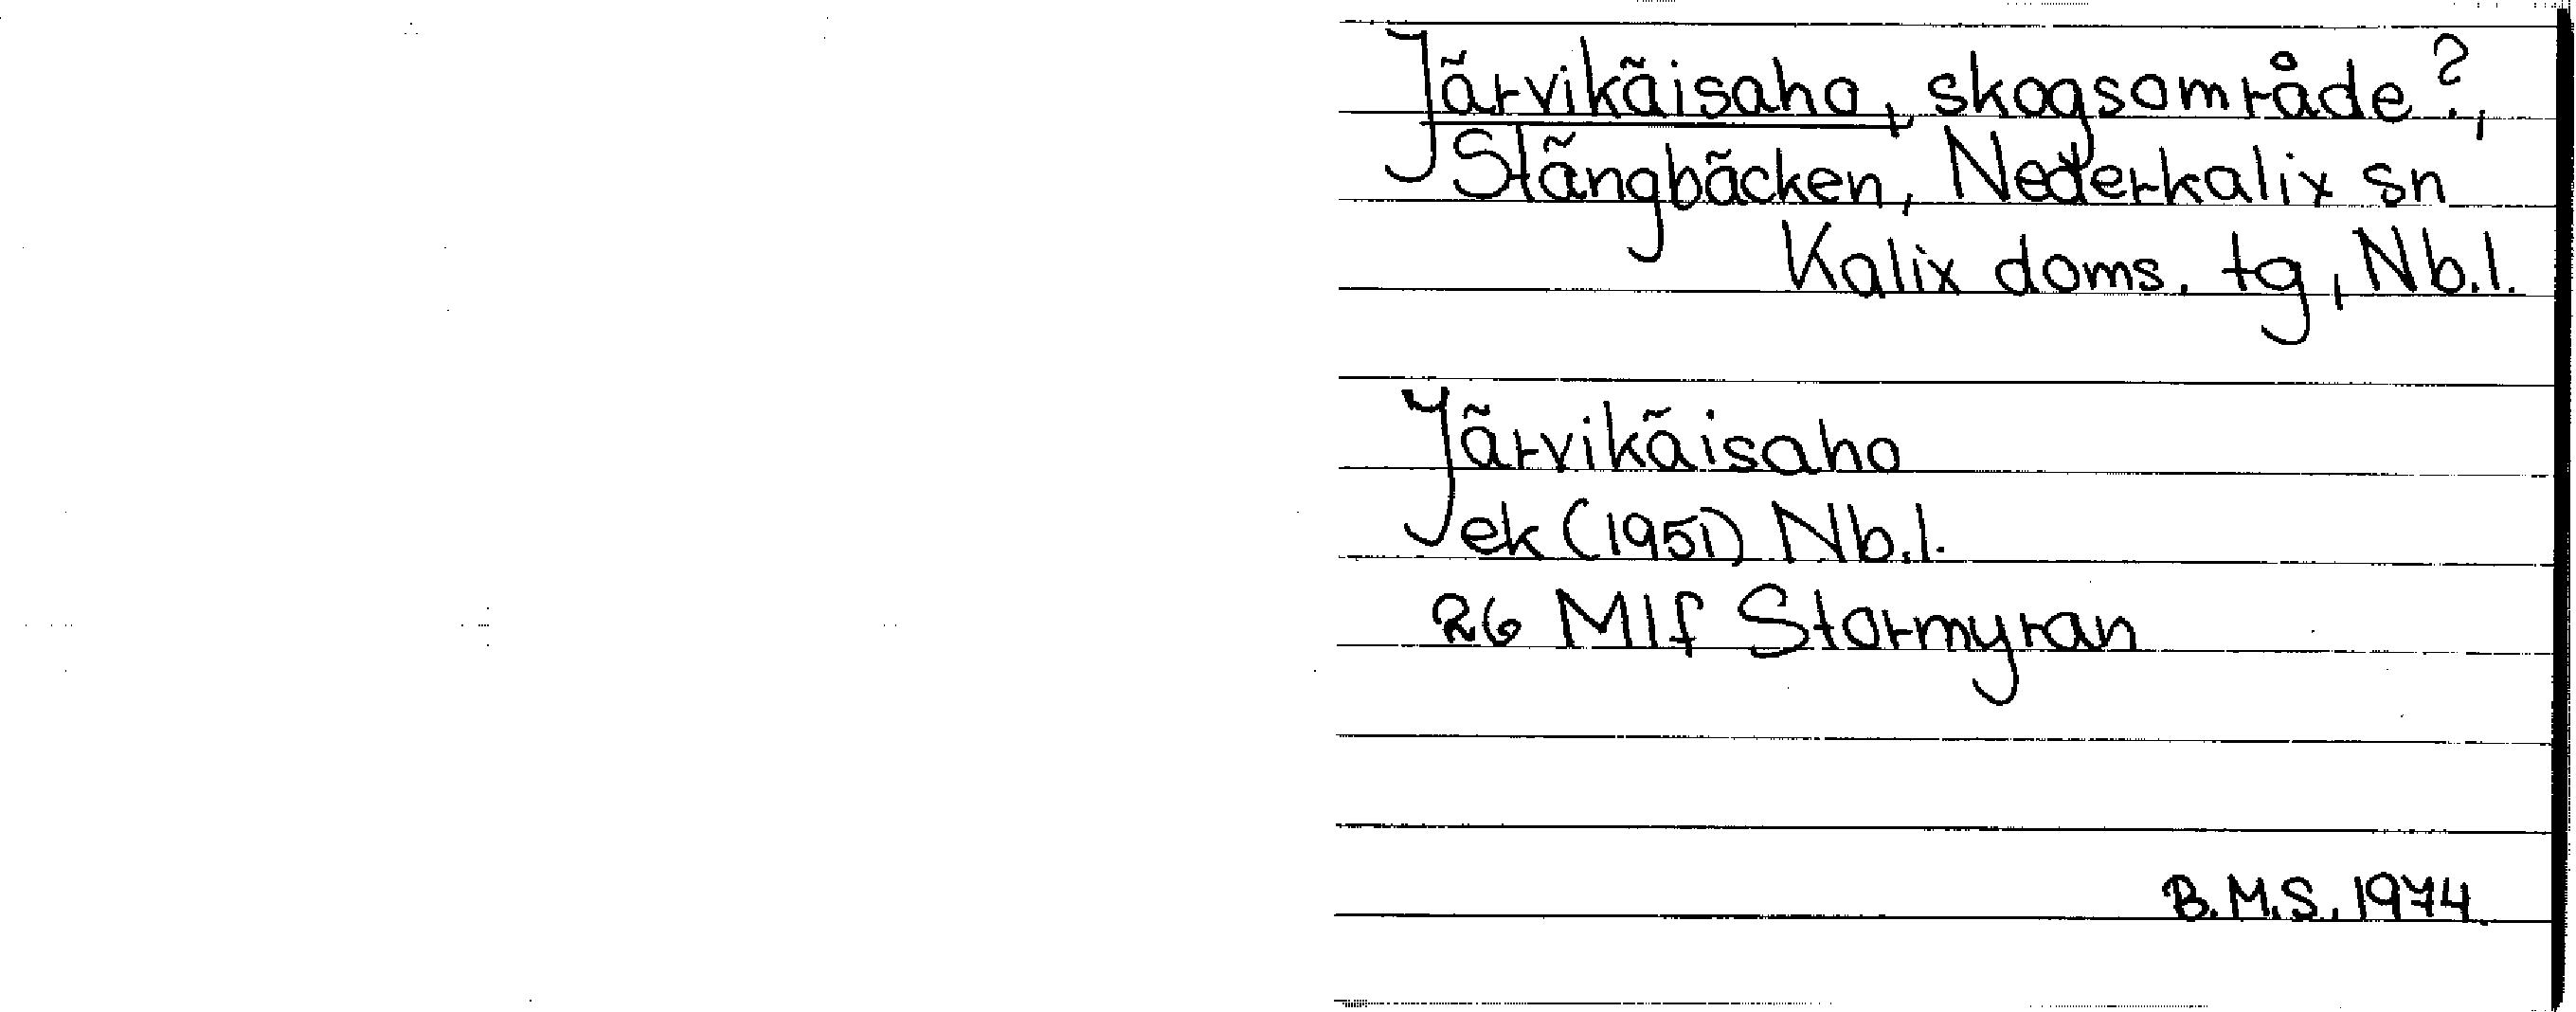 Järvikäisaho, skogsområde?,
Stängbäcken, Nederkalix sn
Kalix doms. tg, Nb.l.
Järvikäisaho
ek (1951) Nb.l.
26 Mlf Stormyran
B.M.S. 1974.